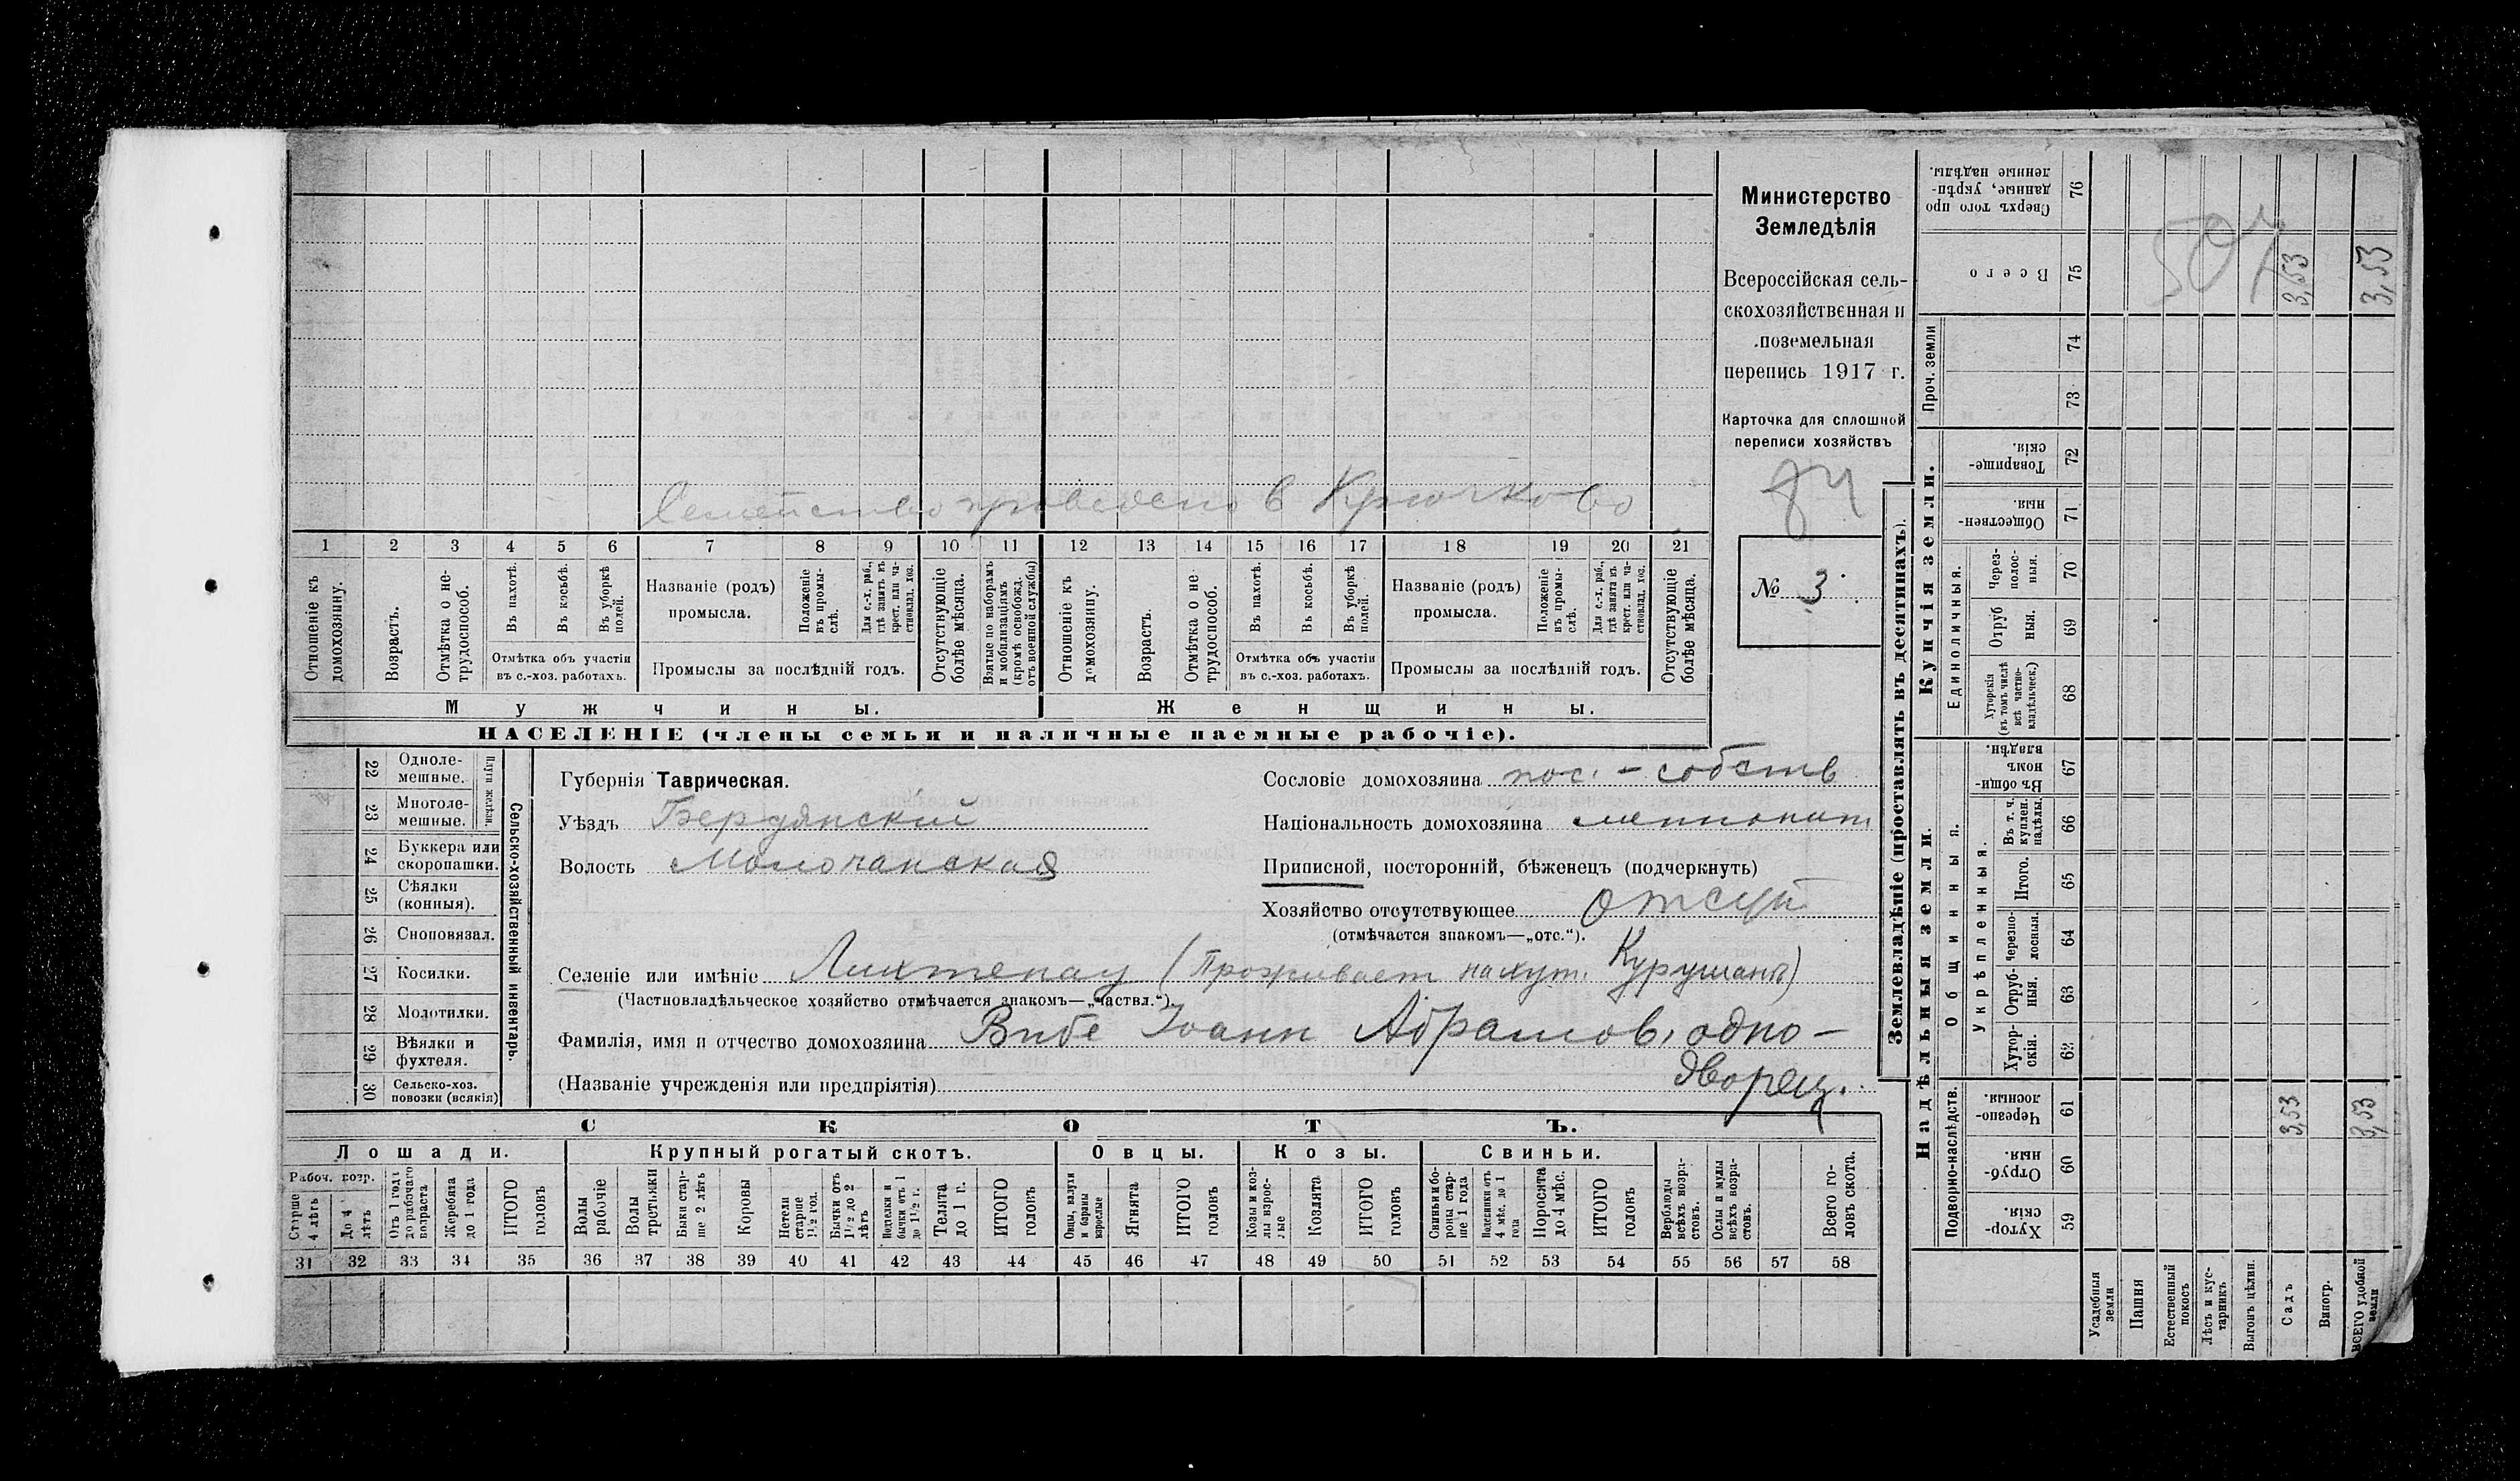 Семейство проведено в Крючково
1 2 3 4 5 6 7 8 9 10 11 12 13 14 15 16 17 18 19 20 21
Отношеніе къ домохозяину.
Возрастъ.
Отмѣтка о не-трудоспособ.
Въ пахотѣ.
Въ косьбѣ.
Въ уборкѣ полей.
Отмѣтка объ участіи
въ с.-хоз. работахъ.
Названіе (родъ)
промысла.
Положеніе въ промы-слѣ.
Для с.-х. раб., гдѣ занятъ въ крест. или ча-стновлад. хоз.
Промыслы за послѣдній годъ.
Отсутствующіе болѣе мѣсяца.
Взятые по наборамъ и мобилизаціямъ (кромѣ освобожд. отъ военной службы)
Отношеніе къ домохозяину.
Возрастъ.
Отмѣтка о не трудоспособ.
Въ пахотѣ.
Въ косьбѣ.
Въ уборкѣ полей.
Отмѣтка объ участіи
въ с.-хоз. работахъ.
Названіе (родъ)
промысла.
Положеніе въ промы-слѣ.
Для с.-х. раб., гдѣ занятъ въ крест. или ча-стновлад. хоз.
Промыслы за послѣдній годъ.
Отсутствующіе болѣе мѣсяца.
Мужчины.
Женщины.
НАСЕЛЕНІЕ (члены семьи и наличные наемные рабочіе).
Министерство
Земледѣлія
Всероссійская сель-
скохозяйственная и
поземельная
перепись 1917 г.
Карточка для сплошной
переписи хозяйствъ
84
№ 3.
22 Одноле-мешные.
23 Многоле-мешные.
Плуги желѣзн.
24 Буккера или скоропашки.
25 Сѣялки (конныя).
26 Сноповязал.
27 Косилки.
28 Молотилки.
29 Вѣялки и фухтеля.
30 Сельско-хоз. повозки (всякія)
Сельско-хозяйственный инвентарь.
Губернія Таврическая.
Уѣздъ Бердянскій
Волость Молочанская
Сословіе домохозяина пос.-собств
Національность домохозяина меннонит
Приписной, посторонній, бѣженецъ (подчеркнуть)
Хозяйство отсутствующее отсут
(отмѣчается знакомъ—„отс.“).
Селеніе или имѣніе Лихтенау (Проживает на хут. Курушанъ)
(Частновладѣльческое хозяйство отмѣчается знакомъ—„частвл.“)
Фамилія, имя и отчество домохозяина Вибе Іоанн Абрамов, одно-
(Названіе учрежденія или предпріятія) дворец.
СКОТЪ.
Лошади.
Крупный рогатый скотъ.
Овцы.
Козы.
Свиньи.
Рабоч. возр.
Старше 4 лѣтъ
До 4 лѣтъ
Отъ 1 года до рабочаго возраста
Жеребята до 1 года
ИТОГО головъ
Волы рабочіе
Волы третьяки
Быки стар-ше 2 лѣтъ
Коровы
Нетели старше 1½ год.
Бычки отъ 1½ до 2 лѣтъ
Подтелки и бычки отъ 1 до 1½ г.
Телята до 1 г.
ИТОГО головъ
Овцы, валухи и бараны взрослые
Ягнята
ИТОГО головъ
Козы и коз-лы взрос-лые
Козлята
ИТОГО головъ
Свиньи и бо-роны стар-ше 1 года
Подсвинки отъ 4 мѣс. до 1 года
Поросята до 4 мѣс.
ИТОГО головъ
Верблюды всѣхъ возра-стовъ.
Ослы и мулы всѣхъ возра-стовъ.
Всего го-ловъ скота.
31 32 33 34 35 36 37 38 39 40 41 42 43 44 45 46 47 48 49 50 51 52 53 54 55 56 57 58
Землевладѣніе (проставлять въ десятинахъ).
Купчія земли.
Надѣльныя земли.
Проч. земли
Единоличныя.
Общинныя.
Укрѣпленныя.
Подворно-наслѣдств.
Сверхъ того про данные, укрѣп-ленные надѣлы. 76
Всего 75 3,53 3,53
507
74
73
Товарище-скія. 72
Обществен-ныя 71
Через-полос-ныя. 70
Отруб ныя. 69
Хуторскія (въ томъ числѣ всѣ частно-владѣльческ.) 68
Въ общин-номъ владѣн. 67
Въ т. ч. куплен. надѣлы. 66
Итого. 65
Черезпо-лосныя. 64
Отруб-ныя. 63
Хутор-скія. 62
Черезпо-лосныя. 61 3,53 3,53
Отруб-ныя. 60
Хутор-скія. 59
Усадебныя земли
Пашня
Естественный покосъ
Лѣсъ и кус-тарникъ
Выгонъ цѣлин.
Садъ
Виногр.
ВСЕГО удобной земли